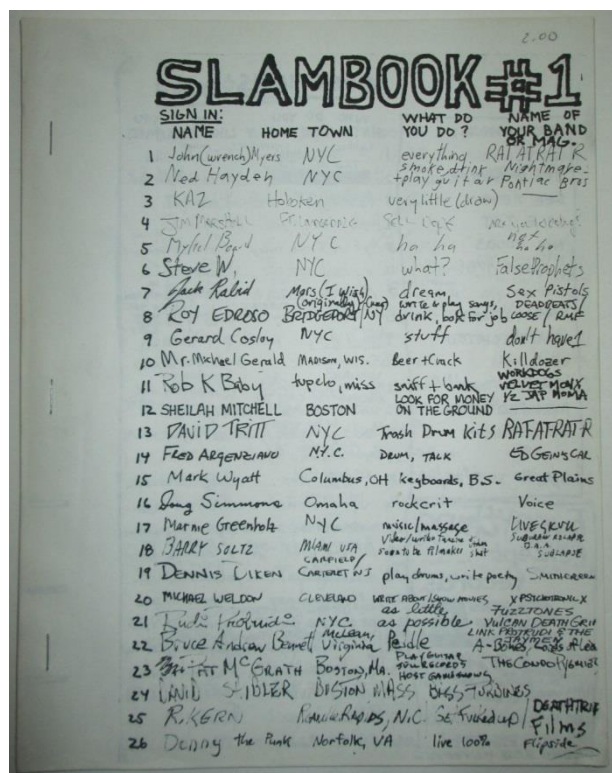 2.00
SLAMBOOK #1
SIGN IN:
NAME HOME TOWN WHAT DO YOU DO? NAME OF YOUR BAND OR MAG.
1 John (wrench) Myers NYC everything RAT AT RAT R
2 Ned Hayden NYC smoke, drink + play guitar Nightmare - Pontiac Bros
3 KAZ Hoboken very little (draw)
4 JIM MARSHALL
5 NYC ha ha not ha ha
6 Steve W. NYC what? False Prophets
7 Jack Rabid Mars (I Wish) dream Sex Pistols
8 ROY EDROSO (originally) BRIDGEPORT / (now) NY write & play songs, drink, look for job DEADBEATS / LOOSE / RMF
9 Gerard Cosloy NYC stuff don't have 1
10 Mr. Michael Gerald MADISON, WIS. Beer + Crack Killdozer
11 Rob K Baby tupelo, miss sniff + bank WORKDOGS VELVET MONX 1/2 JAP MOMA
12 SHEILAH MITCHELL BOSTON LOOK FOR MONEY ON THE GROUND
13 DAVID TRITT NYC Trash Drum Kits RAT AT RAT R
14 FRED ARGENZIANO N.Y.C. DRUM, TALK ED GEINS CAR
15 Mark Wyatt Columbus, OH keyboards, B.S. Great Plains
16 Doug Simmons Omaha rockcrit Voice
17 Marnie Greenholz NYC music/massage LIVE SKULL
18 BARRY SOLTZ MIAMI USA
19 DENNIS DIKEN CARFIELD / CARTERET NJ play drums, write poetry SMITHEREEN
20 MICHAEL WELDON CLEVELAND WRITE ABOUT/SHOW MOVIES X PSYCHOTRONIC X
21 NYC as little as possible FUZZTONES VULCAN DEATH GRIP LINK PROTRUDI & THE JAYMEN
22 Bruce Andrew Bennett McLean, Virginia Peddle A-Bones,
23 PAT McGRATH BOSTON, MA. PLAY GUITAR HOST GAMESHOWS THE CONDO PYGMIES
24 BOSTON MASS BASS TURBINES
25 R. KERN N.C. DEATHTRIP Films
26 Donny the Punk Norfolk, VA live 100% Flipside